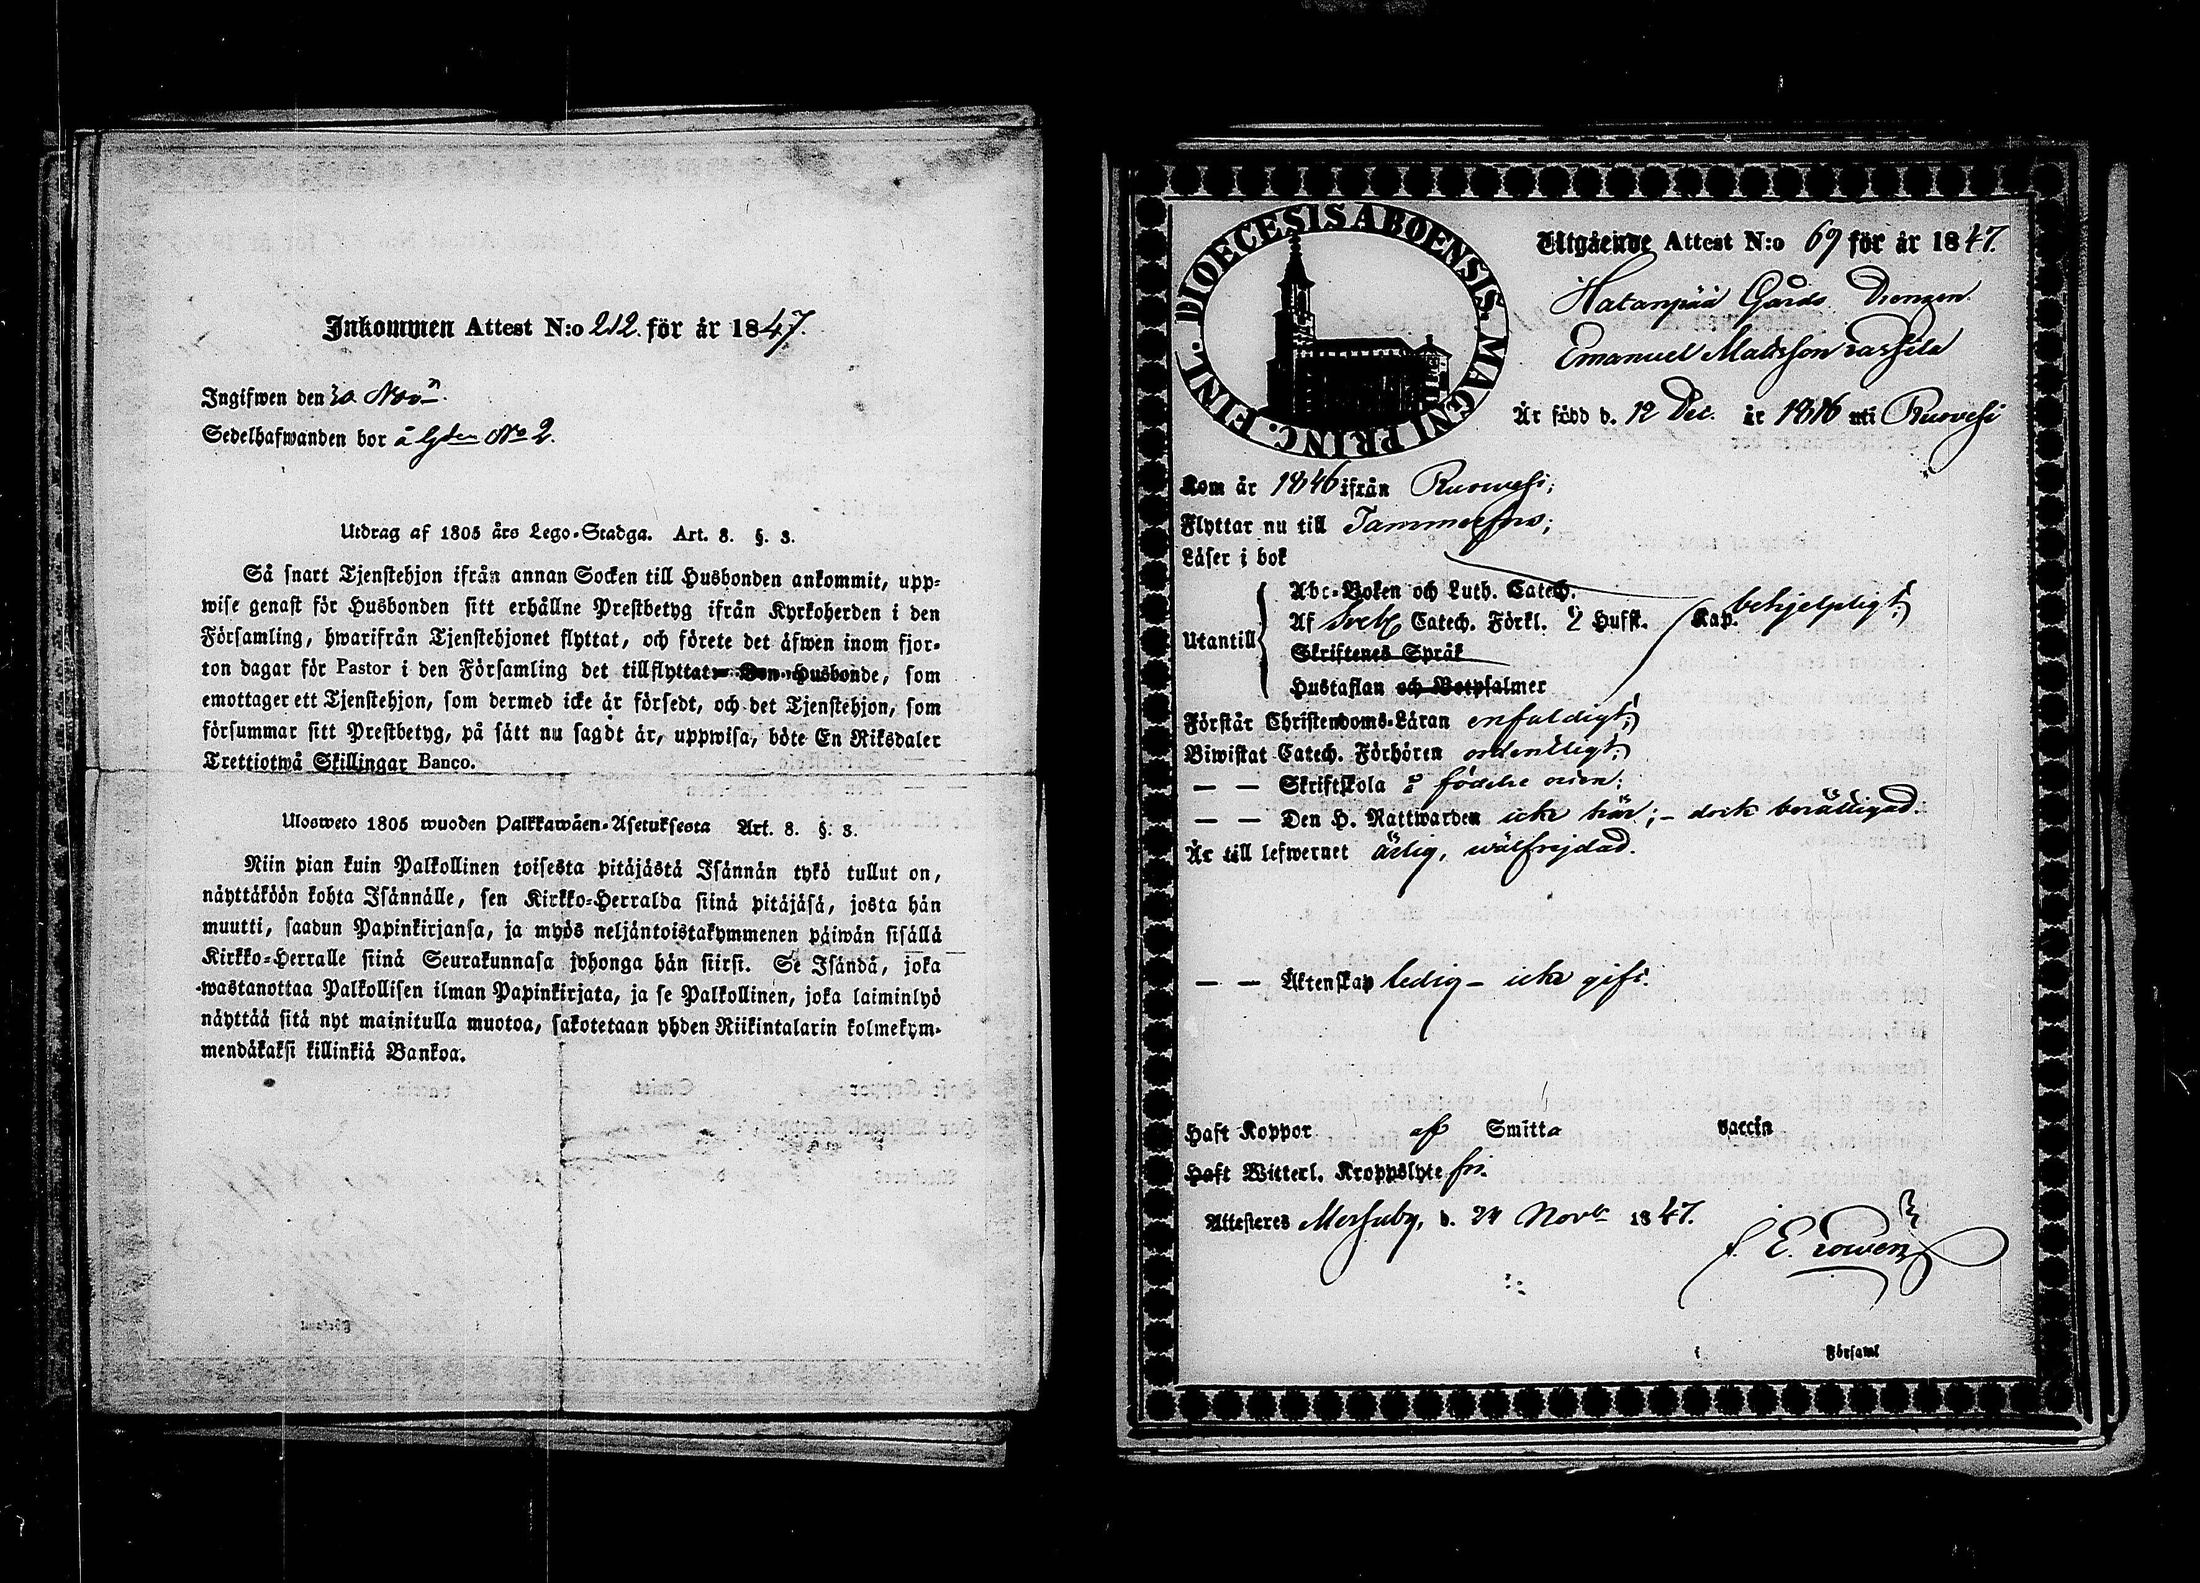 Inkommen Attest N:o 212. för år 1847.
Ingifwen den 30 Nov
Sedelhafwanden bor å Gden No 2.
Utdrag af 1805 års Lego-Stadga. Art. 8. §. 8.
Så snart Tjenstehjon ifrån annan Socken till Husbonden ankommit, upp-
wise genast för Husbonden sitt erhållne Prestbetyg ifrån Kyrkoherden i den
Församling, hwarifrån Tjenstehjonet flyttat, och förete det äfwen inom fjor-
ton dagar för Pastor i den Församling det tillflyttat. Den Husbonde, som
emottager ett Tjenstehjon, som dermed icke är försedt, och det Tjenstehjon, som
försummar sitt Prestbetyg, på sätt nu sagdt är, uppwisa, böte En Riksdaler
Trettiotwå Skillingar Banco.
Ulosweto 1805 wuoden Palkkawäen-Asetuksesta Art. 8. §. 8.
Niin pian kuin Palkollinen toisesta pitäjästä Isännän tykö tullut on,
näyttäköön kohta Isännälle, sen Kirkko-Herralda siinä pitäjäsä, josta hän
muutti, saadun Papinkirjansa, ja myös neljäntoistakymmenen päiwän sisällä
Kirkko-Herralle siinä Seurakunnasa johonga hän siirsi. Se Isändä, joka
wastanottaa Palkollisen ilman Papinkirjata, ja se Palkollinen, joka laiminlyö
näyttää sitä nyt mainitulla muotoa, sakotetaan yhden Riikintalarin kolmekym-
mendäkaksi killinkiä Bankoa.
DIOECESIS ABOENSIS. MAGNI PRINC. FINL.
Utgående Attest N:o 69 för år 1847.
Hatanpää Gårds Drengen
Emanuel Matsson
Är född d. 12 Dec. år 1816 uti Ruovesi
Kom år 1846 ifrån Ruovesi;
Flyttar nu till Tammerfors;
Läser i bok
Abc-Boken och Luth. Catech.
Utantill Af Sveb Catech. Förkl. 2 Hufst. Kap. behjelpligt;
Skriftenes Språk
Hustaflan och Botpsalmer
Förstår Christendoms-Läran enfaldigt;
Biwistat Catech. Förhören ordentligt;
— — Skriftskola å födelse orten;
— — Den H. Nattwarden icke här; - dock berättigad.
Är till lefwernet ärlig, wälfrejdad.
— — Äktenskap ledig - icke gift.
Haft Koppor af Smitta vaccin
Haft Witterl. Kroppslyte fri.
Attesteres Messuby, d. 24 Novbr 1847.
i Församl